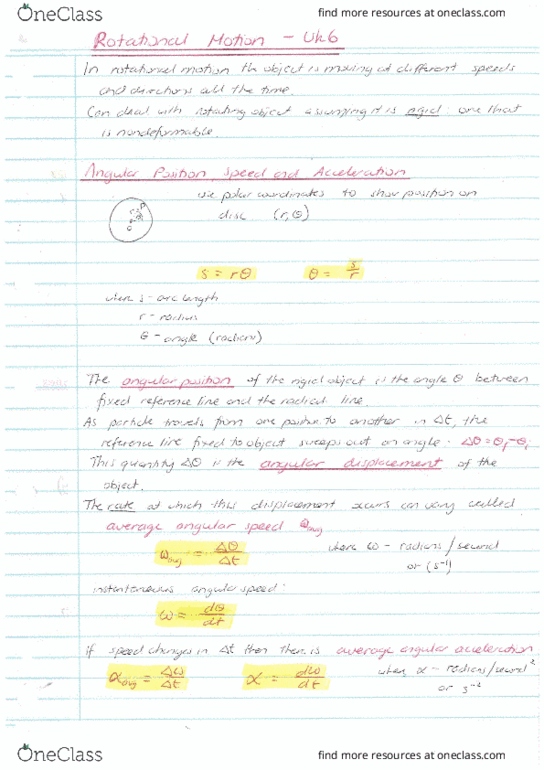 OneClass
find more resources at oneclass.com
Rotational Motion - Wk6
In rotational motion the object is moving at different speeds
and directions all the time.
Can deal with rotating object assuming it is rigid: one that
is nondeformable.
Angular Position, Speed and Acceleration
use polar coordinates to show position on
disc (r, θ)
s = rθ θ = s/r
where s - arc length
r - radius
θ - angle (radians)
The angular position of the rigid object is the angle θ between
fixed reference line and the radical line.
As particle travels from one position to another in Δt, the
reference line fixed to object sweeps out an angle. Δθ = θf - θi
This quantity Δθ is the angular displacement of the
object.
The rate at which this displacement occurs can vary called
average angular speed ωavg
ωavg = Δθ/Δt where ω - radians/second
or (s⁻¹)
instantaneous angular speed:
ω = dθ/dt
if speed changes in Δt then there is average angular acceleration
αavg = Δω/Δt α = dω/dt where α - radians/second²
or s⁻²
OneClass
find more resources at oneclass.com